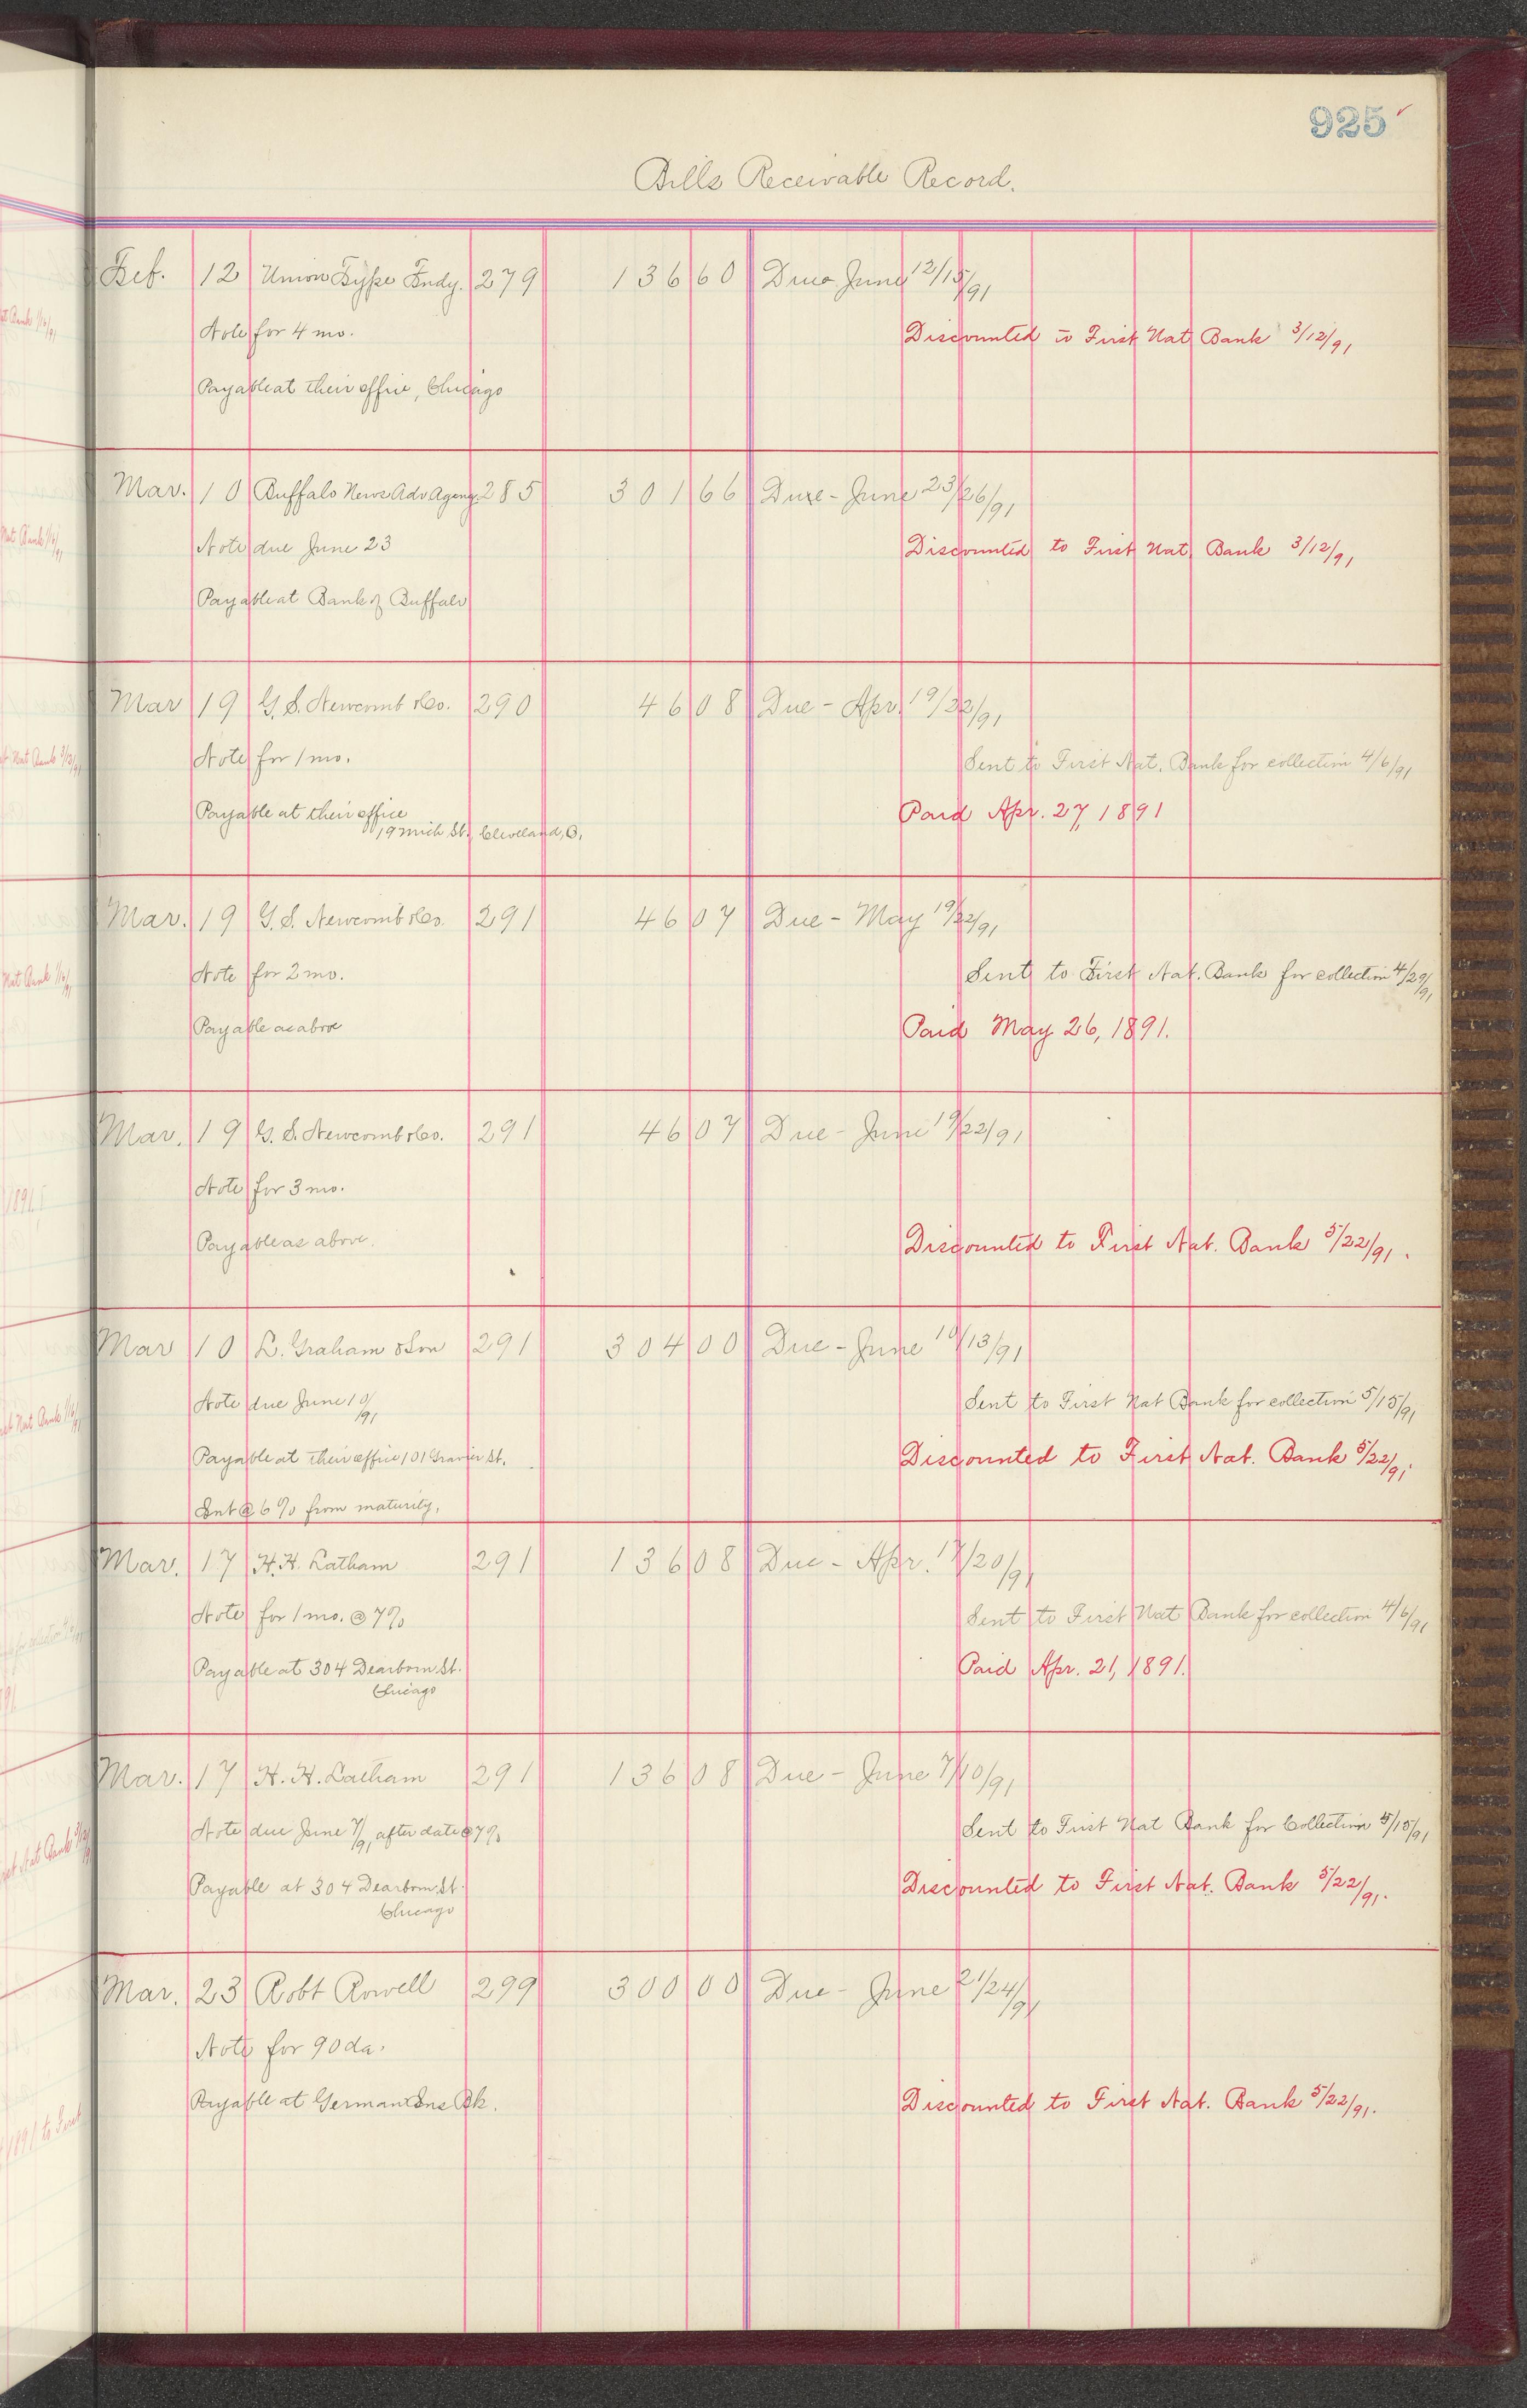 925
Bills Receivable Record.
Feb. 12 Union Type Fndy. 279 136 60 Due June 12/15/91
Note for 4 mo.
Discounted to First Nat Bank 3/12/91
Payable at their office, Chicago
Mar. 10 Buffalo News Adv Agency 285 301 66 Due - June 23/26/91
Note due June 23
Discounted to First Nat Bank 3/12/91
Payable at Bank of Buffalo
Mar 19 G. S. Newcomb & Co. 290 46 08 Due - Apr. 19/22/91
Note for 1 mo.
Sent to First Nat. Bank for collection 4/6/91
Payable at their office
19 Mich St., Cleveland, O.
Paid Apr. 27, 1891
Mar. 19 G. S. Newcomb & Co. 291 46 07 Due - May 19/22/91
Note for 2 mo.
Sent to First Nat. Bank for collection 4/29/91
Payable as above
Paid May 26, 1891.
Mar. 19 G. S. Newcomb & Co. 291 46 07 Due - June 19/22/91
Note for 3 mo.
Payable as above.
Discounted to First Nat. Bank 5/22/91.
Mar 10 L. Graham & Son 291 304 00 Due - June 10/13/91
Note due June 10/91
Sent to First Nat Bank for collection 5/15/91
Payable at their office 101 Gravier St.
Discounted to First Nat. Bank 5/22/91.
Int @ 6% from maturity.
Mar. 17 H. H. Latham 291 136 08 Due - Apr. 17/20/91
Note for 1 mo. @ 7%
Sent to First Nat Bank for collection 4/6/91
Payable at 304 Dearborn St.
Chicago
Paid Apr. 21, 1891.
Mar. 17 H. H. Latham 291 136 08 Due - June 7/10/91
Note due June 7/91 after date @ 7%
Sent to First Nat Bank for Collection 5/15/91
Payable at 304 Dearborn St.
Chicago
Discounted to First Nat. Bank 5/22/91.
Mar. 23 Robt Rowell 299 300 00 Due - June 21/24/91
Note for 90 da.
Payable at German Ins Bk.
Discounted to First Nat. Bank 5/22/91.